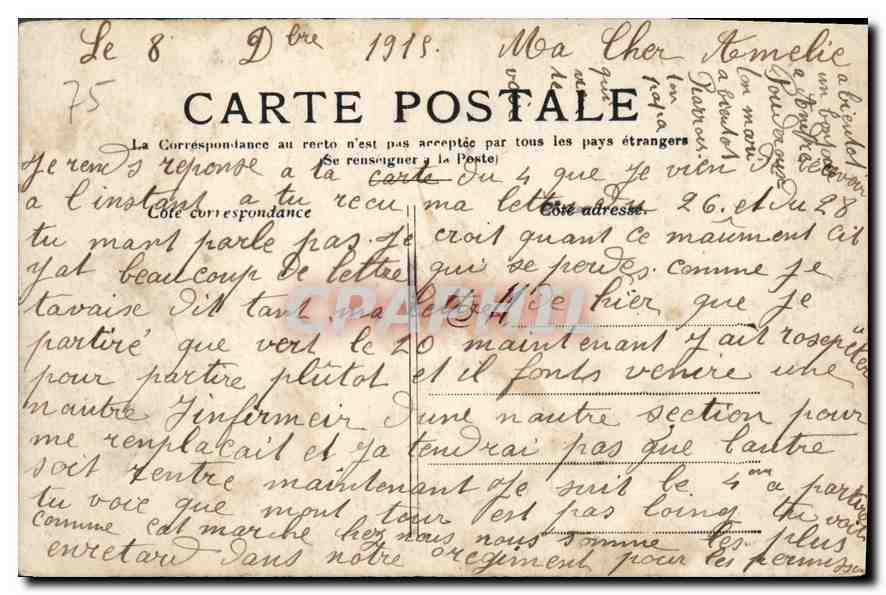 Le 8 Dbre 1915. Ma Cher Amelie
75
CARTE POSTALE
La Correspondance au recto n'est pas acceptée par tous les pays étrangers
(Se renseigner à la Poste)
Je rends reponse a ta carte du 4 que je vien de
a l'instant a tu recu ma lettre du 26. et du 28
Côté correspondance
Côté adresse.
tu mant parle pas. Je croit quant ce maument cit
yat beaucoup de lettre qui se perdes. comme je
tavaise dit tant ma lettre de hier que je
partiré que vert le 20 maintenant y ait rosepéter
pour partire plûtot et il fonts venire une
nautre Jinfirmeir dune nautre section pour
me renplacait et ja tendrai pas que lautre
soit rentre maintenant Je suit le 4eme a partire
tu voie que mont tour est pas loing tu voit
comme cat marche chez nous nous somme les plus
enretard dans notre regiment pour les permission
a bientot
un bonjour
a
ton mari
a bientot
Pierrois.
ton
papa
qui
CPAPHIL